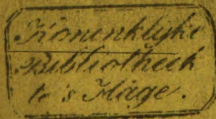 Konenklyke
Bibliotheek
te 's Hage.